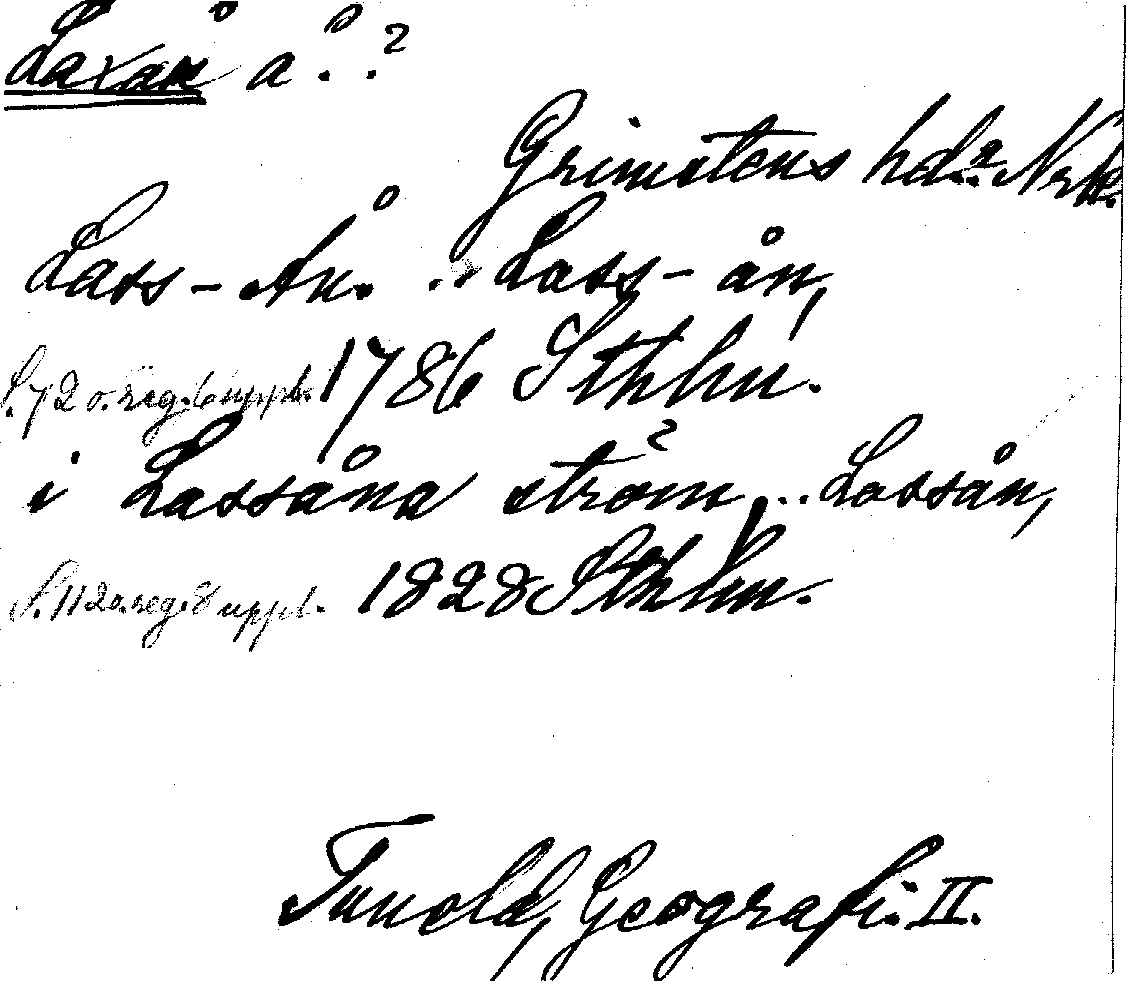 Laxån å..?
Grimstens hd.. Nrk.
Lass-Ån. .. Lass-ån,
S. 72 o. reg. 6 uppl. 1786 Sthlm.
i Lassåna ström, .. Lassån,
S. 112 o. reg. 8 uppl. 1828 Sthlm.
Tuneld, Geografi. II.